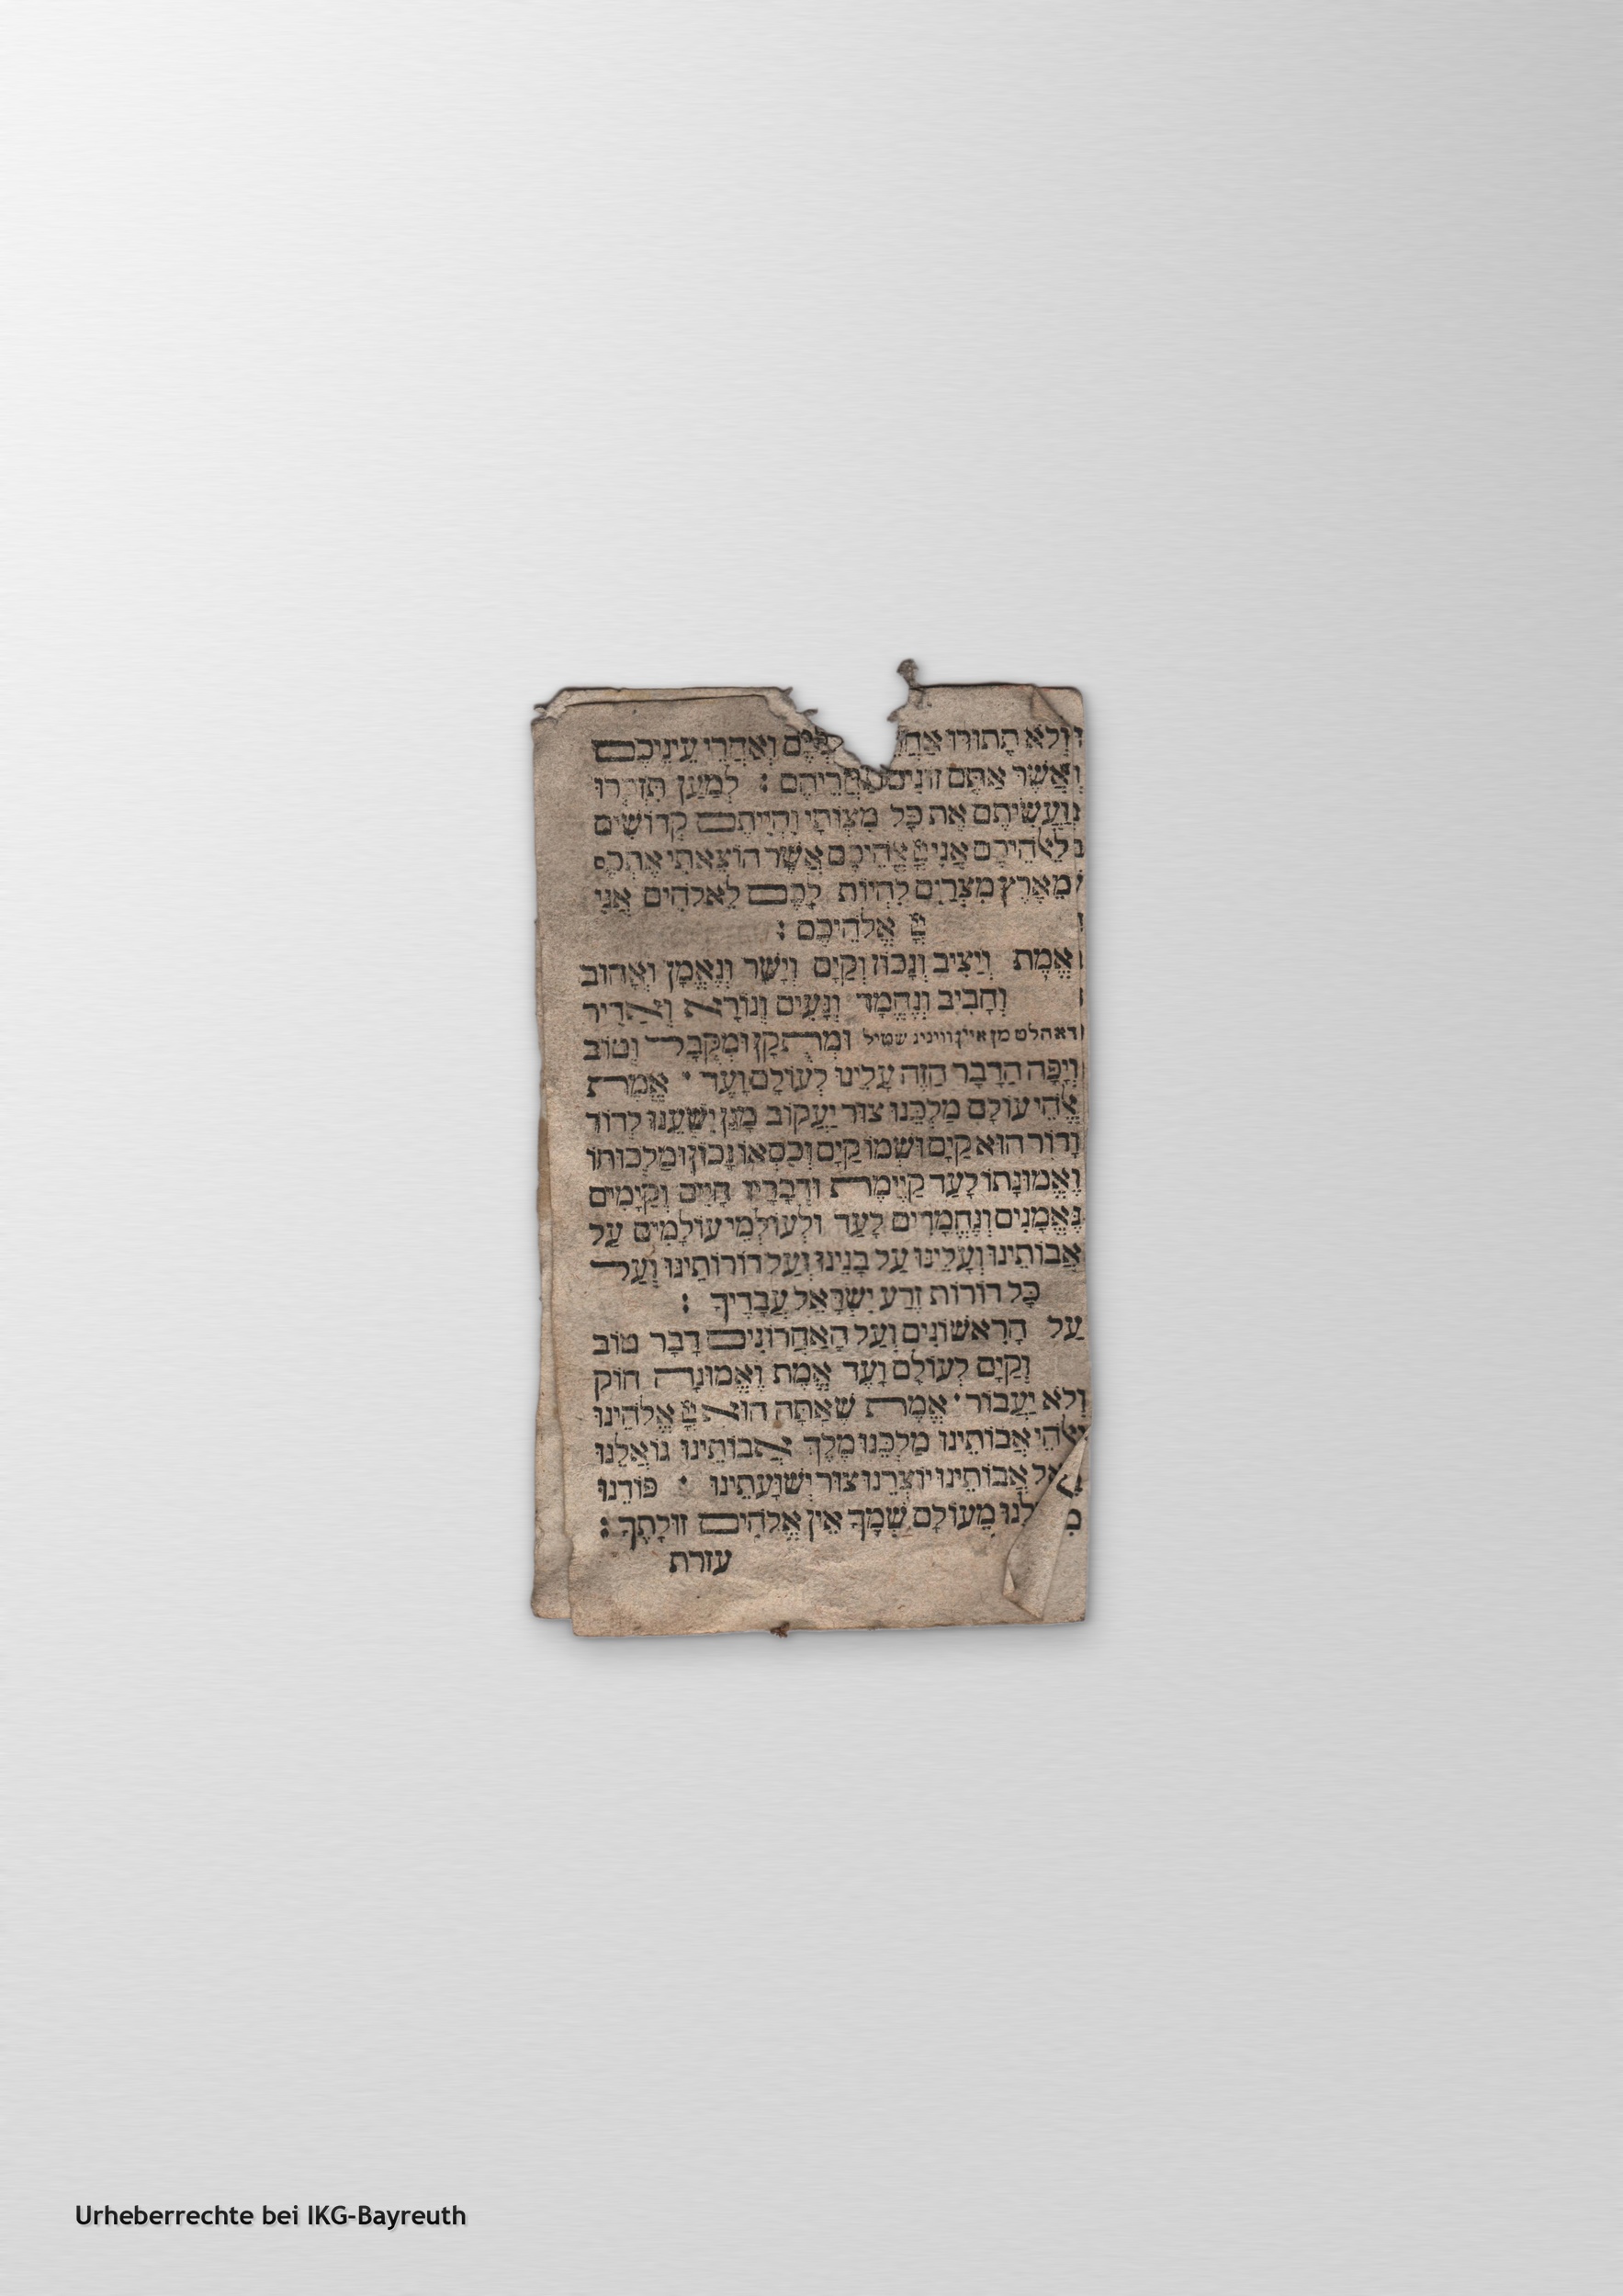 וְלֹא תָתוּרוּ וְאַחֲרֵי עֵינֵיכֶם
אֲשֶׁר אַתֶּם זוֹנִים אַחֲרֵיהֶם : לְמַעַן תִּזְכְּרוּ
וַעֲשִׂיתֶם אֶת כָּל מִצְוֹתָי וִהְיִיתֶם קְדוֹשִׁים
לֵאלֹהֵיכֶם אֲנִי יְיָ אֱלֹהֵיכֶם אֲשֶׁר הוֹצֵאתִי אֶתְכֶם
מֵאֶרֶץ מִצְרַיִם לִהְיוֹת לָכֶם לֵאלֹהִים אֲנִי
יְיָ אֱלֹהֵיכֶם :
אֱמֶת וְיַצִּיב וְנָכוֹן וְקַיָּם וְיָשָׁר וְנֶאֱמָן וְאָהוּב
וְחָבִיב וְנֶחְמָד וְנָעִים וְנוֹרָא וְאַדִּיר
דא הלט מן איין וויניג שטיל וּמְתֻקָּן וּמְקֻבָּל וְטוֹב
וְיָפֶה הַדָּבָר הַזֶּה עָלֵינוּ לְעוֹלָם וָעֶד · אֱמֶת
אֱלֹהֵי עוֹלָם מַלְכֵּנוּ צוּר יַעֲקוֹב מָגֵן יִשְׁעֵנוּ לְדוֹר
וָדוֹר הוּא קַיָּם וּשְׁמוֹ קַיָּם וְכִסְאוֹ נָכוֹן וּמַלְכוּתוֹ
וֶאֱמוּנָתוֹ לָעַד קַיֶּימֶת וּדְבָרָיו חָיִים וְקַיָּמִים
נֶאֱמָנִים וְנֶחֱמָדִים לָעַד וּלְעוֹלְמֵי עוֹלָמִים עַל
אֲבוֹתֵינוּ וְעָלֵינוּ עַל בָּנֵינוּ וְעַל דּוֹרוֹתֵינוּ וְעַל
כָּל דּוֹרוֹת זֶרַע יִשְׂרָאֵל עֲבָדֶיךָ :
עַל הָרִאשׁוֹנִים וְעַל הָאַחֲרוֹנִים דָּבָר טוֹב
וְקַיָּם לְעוֹלָם וָעֶד אֱמֶת וֶאֱמוּנָה חוֹק
וְלֹא יַעֲבוֹר · אֱמֶת שֶׁאַתָּה הוּא יְיָ אֱלֹהֵינוּ
וֵאלֹהֵי אֲבוֹתֵינוּ מַלְכֵּנוּ מֶלֶךְ אֲבוֹתֵינוּ גּוֹאֲלֵנוּ
אֲבוֹתֵינוּ יוֹצְרֵנוּ צוּר יְשׁוּעָתֵינוּ · פּוֹדֵנוּ
מֵעוֹלָם שְׁמֶךָ אֵין אֱלֹהִים זוּלָתֶךָ :
עזרת
Urheberrechte bei IKG-Bayreuth